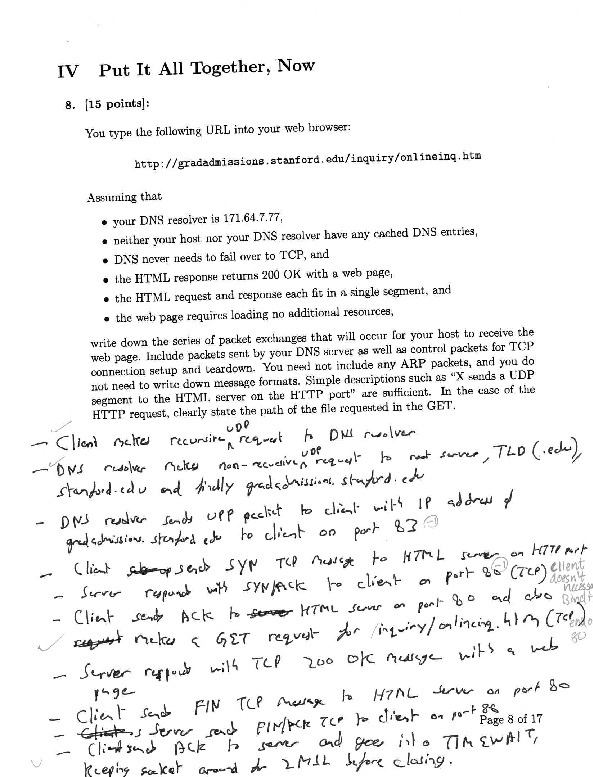 IV Put It All Together, Now
8. [15 points]:
You type the following URL into your web browser:
http://gradadmissions.stanford.edu/inquiry/onlineinq.htm
Assuming that
• your DNS resolver is 171.64.7.77,
• neither your host nor your DNS resolver have any cached DNS entries,
• DNS never needs to fail over to TCP, and
• the HTML response returns 200 OK with a web page,
• the HTML request and response each fit in a single segment, and
• the web page requires loading no additional resources,
write down the series of packet exchanges that will occur for your host to receive the
web page. Include packets sent by your DNS server as well as control packets for TCP
connection setup and teardown. You need not include any ARP packets, and you do
not need to write down message formats. Simple descriptions such as "X sends a UDP
segment to the HTML server on the HTTP port" are sufficient. In the case of the
HTTP request, clearly state the path of the file requested in the GET.
UDP
- Client makes recursive request to DNS resolver
UDP
- DNS resolver makes non-recursive request to root server, TLD (.edu),
stanford.edu and finally gradadmissions.stanford.edu
- DNS resolver sends UPP packet to client with IP address of
gradadmissions.stanford.edu to client on port 83
- Client sends SYN TCP message to HTML server on HTTP port
- Server responds with SYN/ACK to client on port 80 (TCP)
client
doesn't
- Client sends ACK to HTML server on port 80 and also
makes a GET request for /inquiry/onlineinq.htm (TCP)
80
- Server responds with TCP 200 OK message with a web
page
- Client sends FIN TCP message to HTML server on port 80
- Server sends FIN/ACK TCP to client on port
Page 8 of 17
- Client sends ACK to server and goes into TIMEWAIT,
keeping socket around for 2MSL before closing.